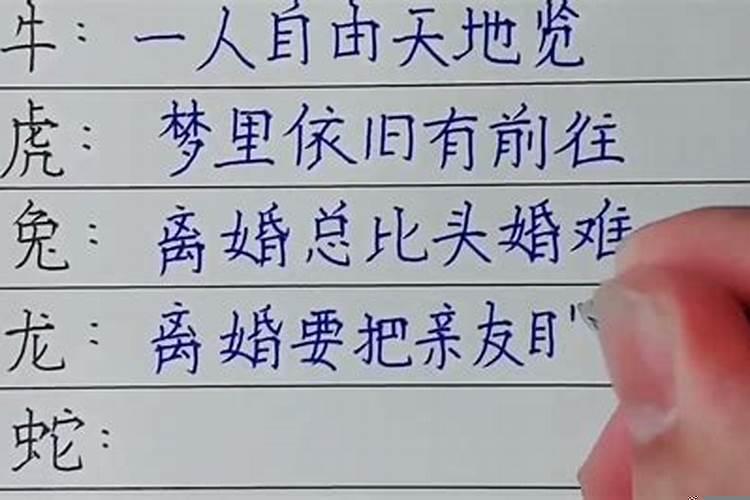 牛：一人自由天地览
虎：梦里依旧有前往
兔：离婚总比头婚难
龙：离婚要把亲友
蛇：